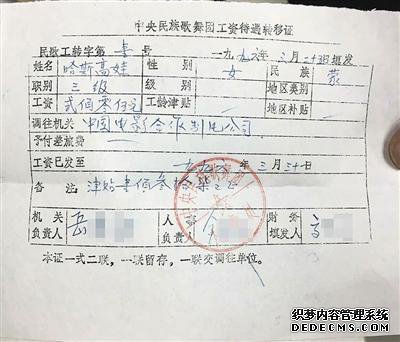 中央民族歌舞团工资待遇转移证
民歌工转字第 号 一九九六年三月二十日填发
姓名 哈斯高娃 性别 女 民族 蒙
职别 三级 级别 地区类别
工资 贰佰零 元 工龄津贴 地区补贴
调往机关 中国电影合作制片公司
予付差旅费
工资已发至 一九九六年三月三十日
备注 津贴壹佰叁拾柒元
机关负责人 岳 人事负责人 财务填发人
本证一式二联，一联留存，一联交调往单位。
织梦内容管理系统
DEDECMS.COM